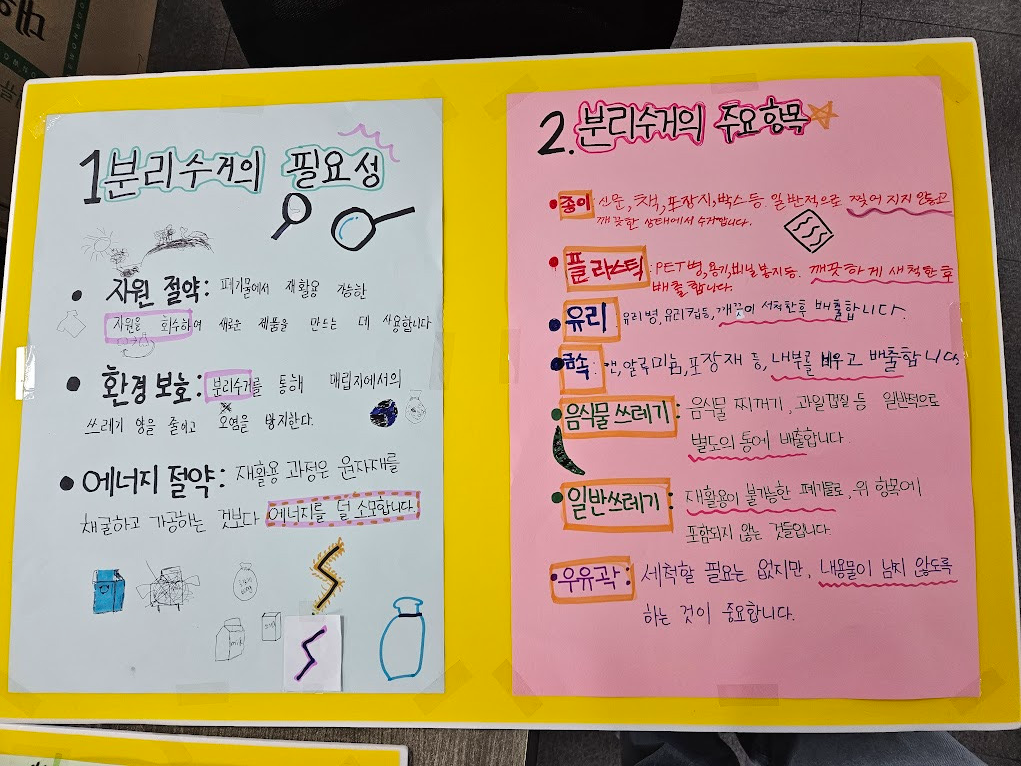 1 분리수거의 필요성
• 자원 절약: 폐기물에서 재활용 가능한
자원을 회수하여 새로운 제품을 만드는 데 사용합니다
• 환경 보호: 분리수거를 통해 매립지에서의
쓰레기 양을 줄이고 오염을 방지한다.
• 에너지 절약: 재활용 과정은 원자재를
채굴하고 가공하는 것보다 에너지를 덜 소모합니다.
milk
2. 분리수거의 주요항목
• 종이: 신문, 책, 포장지, 박스 등 일반적으로 찢어 지지 않고
깨끗한 상태에서 수거합니다.
• 플라스틱: PET병, 용기, 비닐봉지 등. 깨끗하게 세척한 후
배출합니다.
• 유리: 유리병, 유리컵 등, 깨끗이 세척한 후 배출합니다.
• 금속: 캔, 알루미늄, 포장재 등, 내부를 비우고 배출합니다
• 음식물 쓰레기: 음식물 찌꺼기, 과일껍질 등 일반적으로
별도의 통에 배출합니다.
• 일반쓰레기: 재활용이 불가능한 폐기물로, 위 항목에
포함되지 않는 것들입니다.
• 우유곽: 세척할 필요는 없지만, 내용물이 남지 않도록
하는 것이 중요합니다.